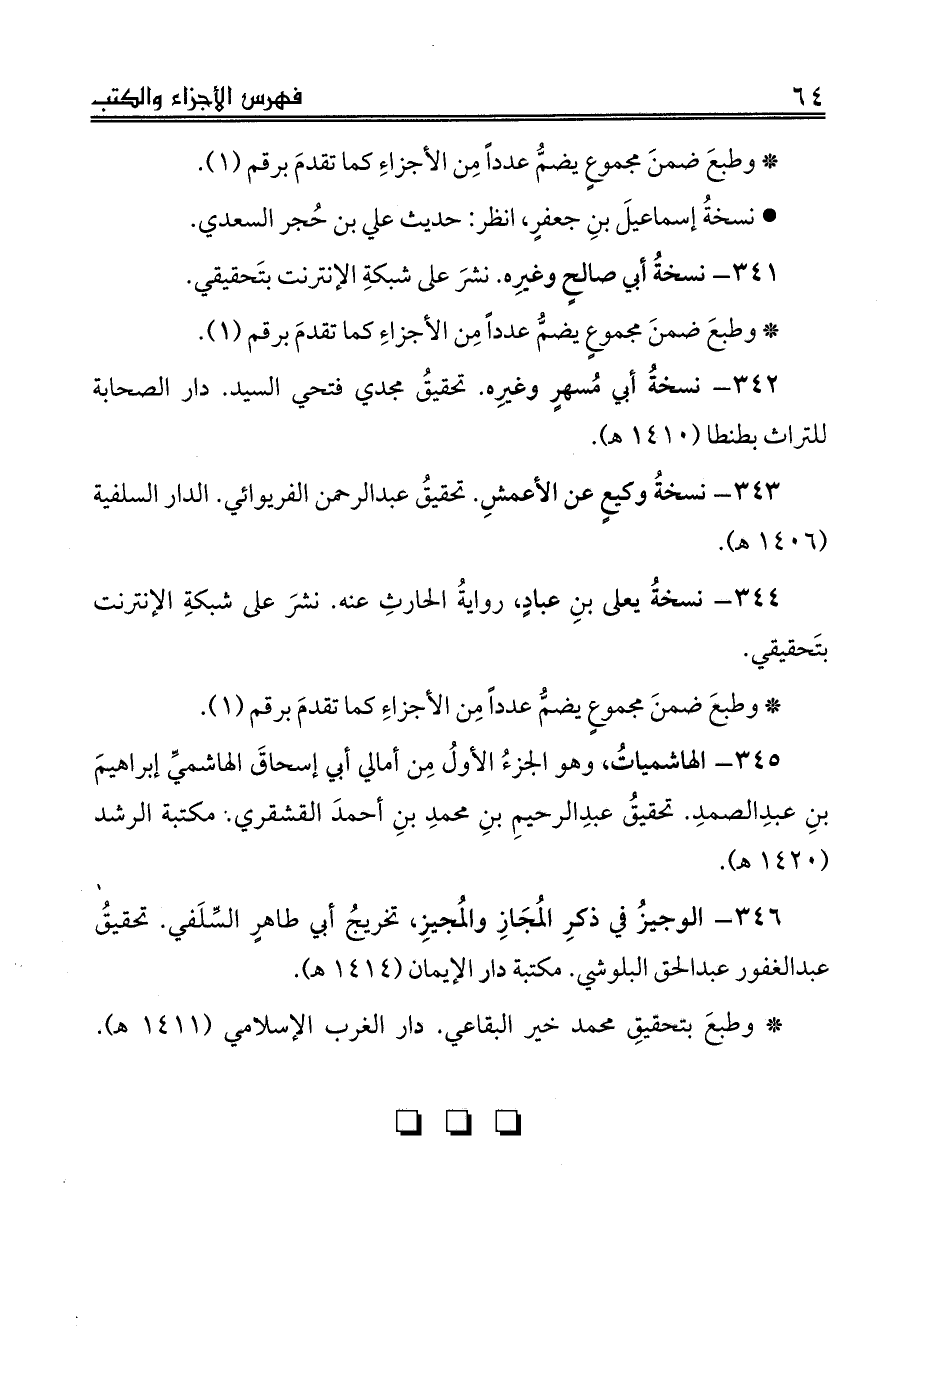 ٦٤ فهرس الأجزاء والكتب
* وطبعَ ضمنَ مجموعٍ يضمُّ عدداً مِن الأجزاءِ كما تقدمَ برقم (١).
● نسخةُ إسماعيلَ بنِ جعفرٍ، انظر: حديث علي بن حُجر السعدي.
٣٤١- نسخةُ أبي صالحٍ وغيرِه. نشرَ على شبكةِ الإنترنت بتَحقيقي.
* وطبعَ ضمنَ مجموعٍ يضمُّ عدداً مِن الأجزاءِ كما تقدمَ برقم (١).
٣٤٢- نسخةُ أبي مُسهرٍ وغيرِه. تحقيقُ مجدي فتحي السيد. دار الصحابة
للتراث بطنطا (١٤١٠ هـ).
٣٤٣- نسخةُ وكيعٍ عن الأعمشِ. تحقيقُ عبدالرحمن الفريوائي. الدار السلفية
(١٤٠٦ هـ).
٣٤٤- نسخةُ يعلى بنِ عبادٍ، روايةُ الحارثِ عنه. نشرَ على شبكةِ الإنترنت
بتَحقيقي.
* وطبعَ ضمنَ مجموعٍ يضمُّ عدداً مِن الأجزاءِ كما تقدمَ برقم (١).
٣٤٥- الهاشمياتُ، وهو الجزءُ الأولُ مِن أمالي أبي إسحاقَ الهاشميِّ إبراهيمَ
بنِ عبدِالصمدِ. تحقيقُ عبدِالرحيمِ بنِ محمدِ بنِ أحمدَ القشقري. مكتبة الرشد
(١٤٢٠ هـ).
٣٤٦- الوجيزُ في ذكرِ المُجَازِ والمُجيزِ، تخريجُ أبي طاهرٍ السِّلَفي. تحقيقُ
عبدالغفور عبدالحق البلوشي. مكتبة دار الإيمان (١٤١٤ هـ).
* وطبعَ بتحقيقِ محمد خير البقاعي. دار الغرب الإسلامي (١٤١١ هـ).